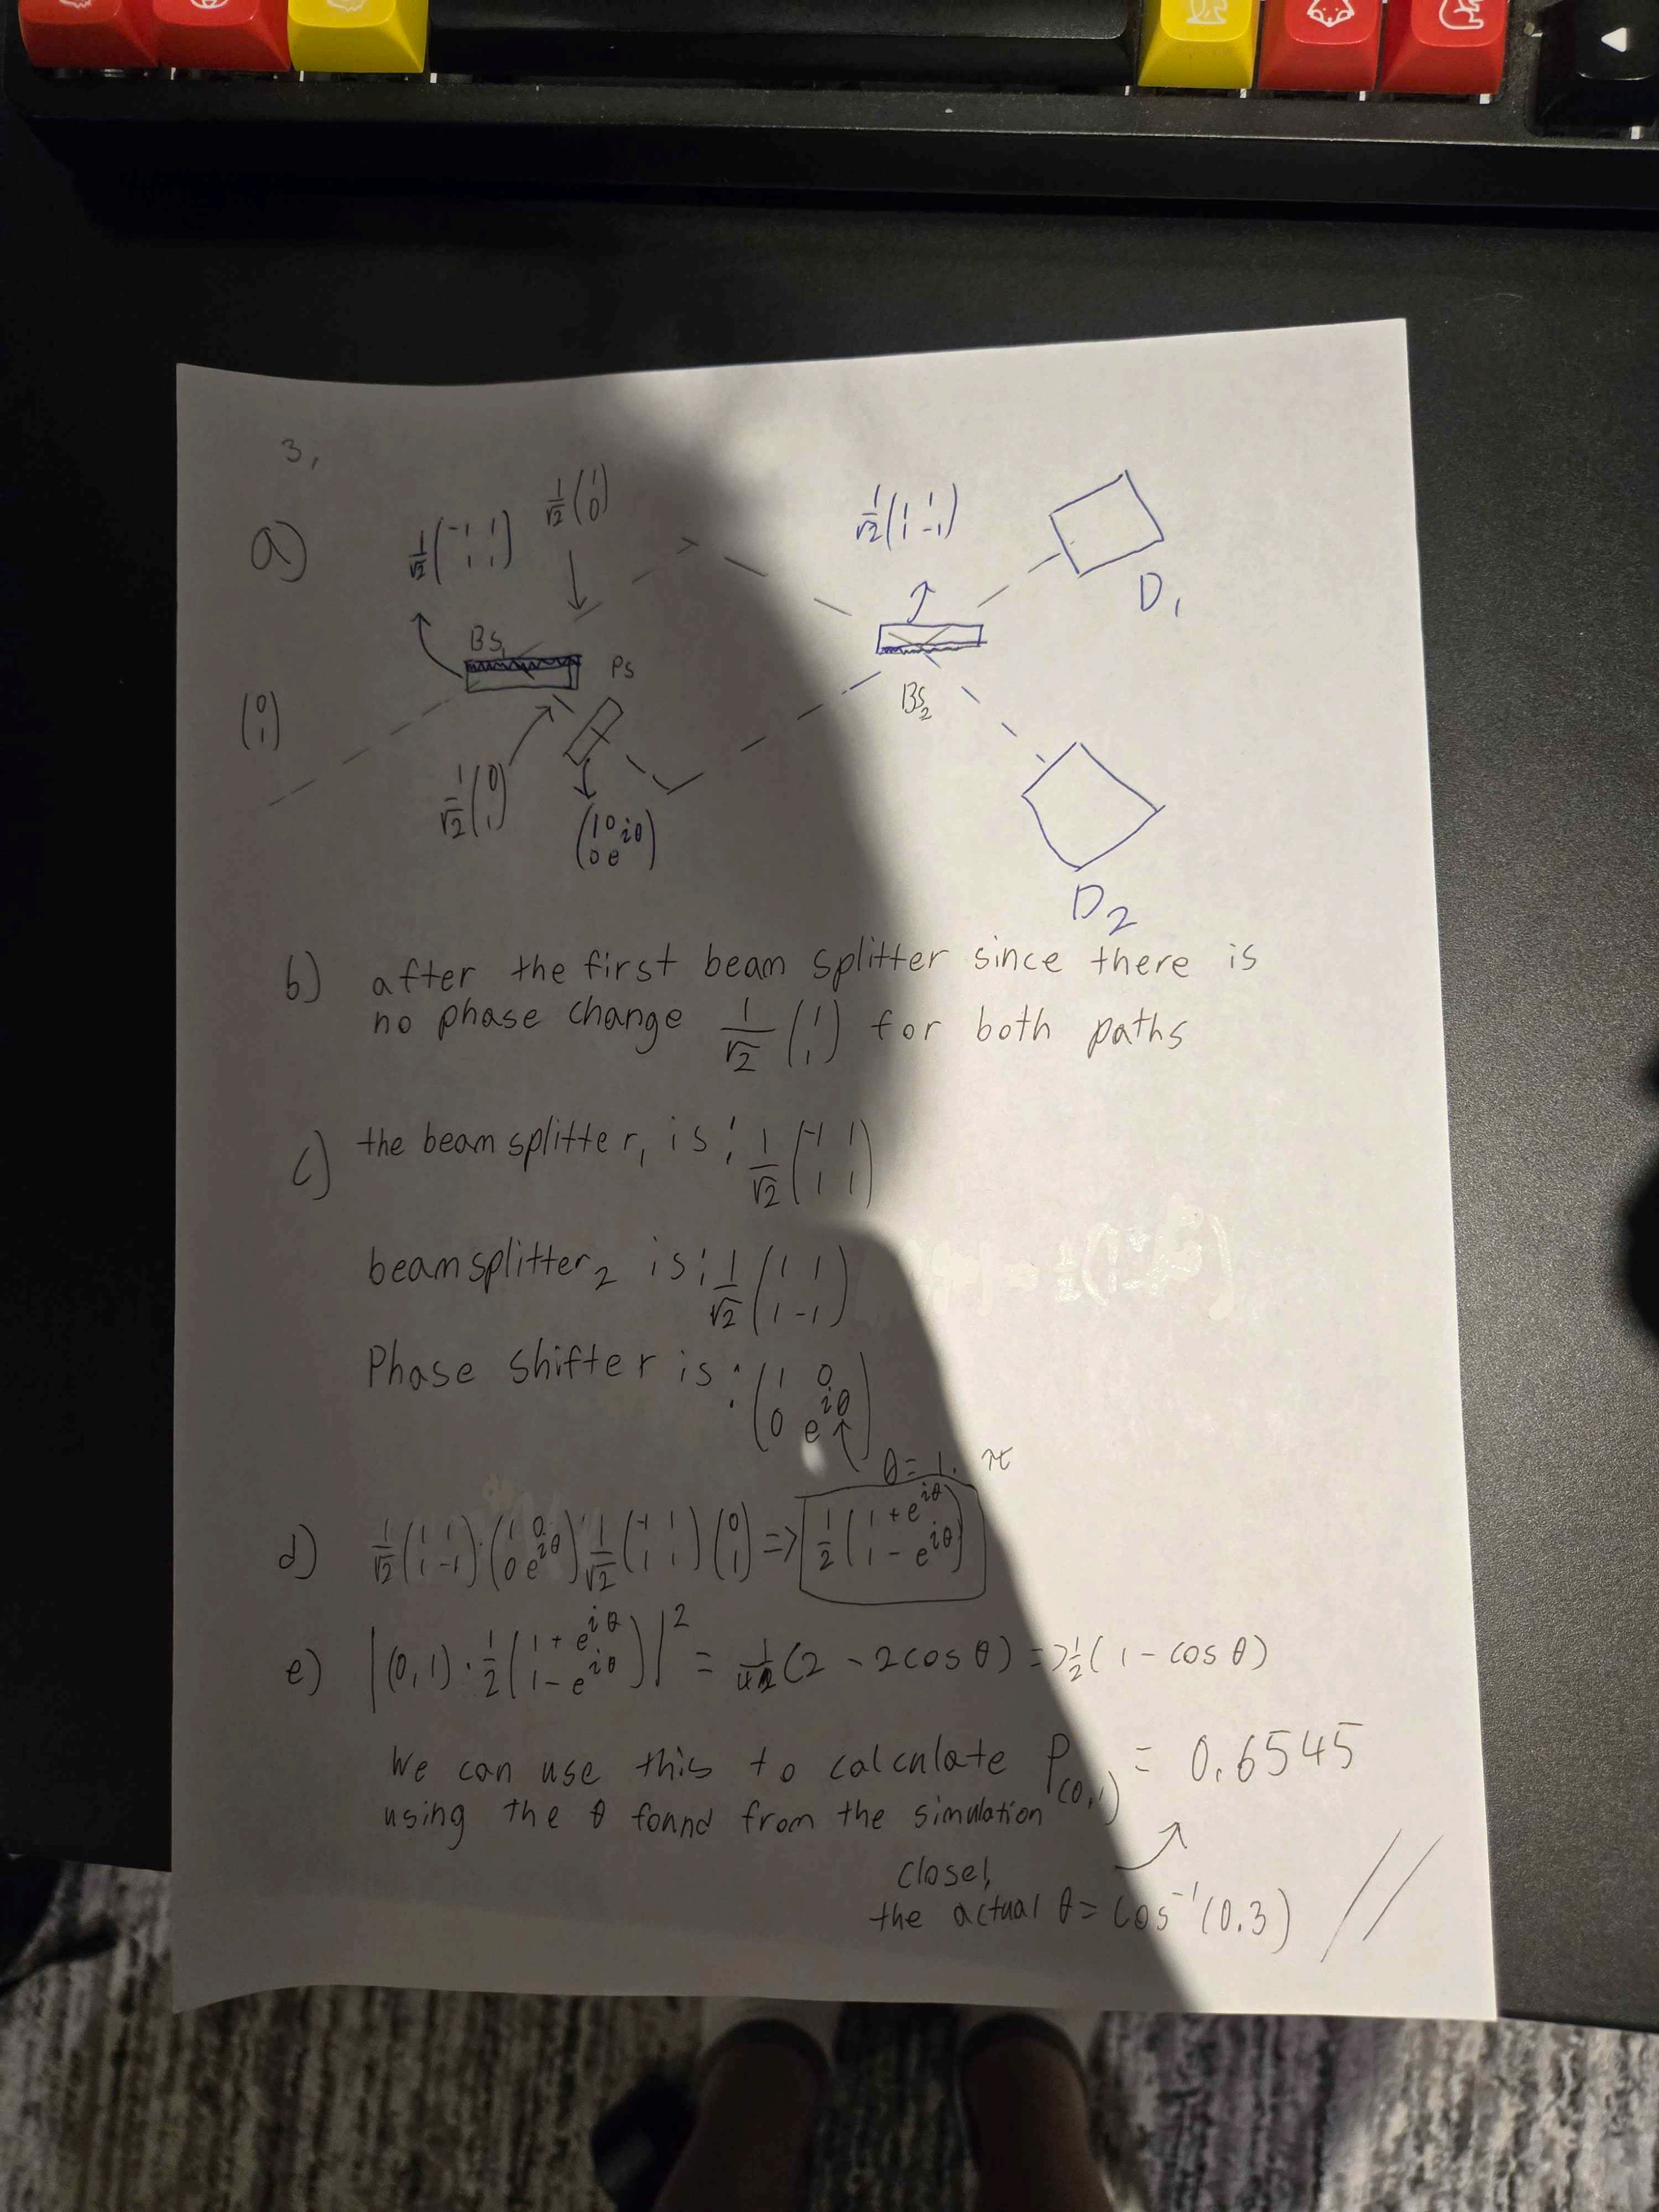 3.
a)
1/√2 (-1 1; 1 1)
1/√2 (1; 0)
1/√2 (1 1; 1 -1)
D₁
BS₁
PS
(0; 1)
BS₂
1/√2 (0; 1)
(1 0; 0 e^{iθ})
D₂
b) after the first beam splitter since there is
no phase change 1/√2 (1; 1) for both paths
c) the beam splitter₁ is: 1/√2 (-1 1; 1 1)
beam splitter₂ is: 1/√2 (1 1; 1 -1)
Phase shifter is: (1 0; 0 e^{iθ})
θ = 1. π
d) 1/√2 (1 1; 1 -1) · (1 0; 0 e^{iθ}) · 1/√2 (-1 1; 1 1) (0; 1) => 1/2 (1 + e^{iθ}; 1 - e^{iθ})
e) |(0,1) · 1/2 (1 + e^{iθ}; 1 - e^{iθ})|² = 1/4 (2 - 2cosθ) => 1/2 (1 - cosθ)
We can use this to calculate P(0,1) = 0.6545
using the θ found from the simulation
close!
the actual θ = cos⁻¹(0.3) //